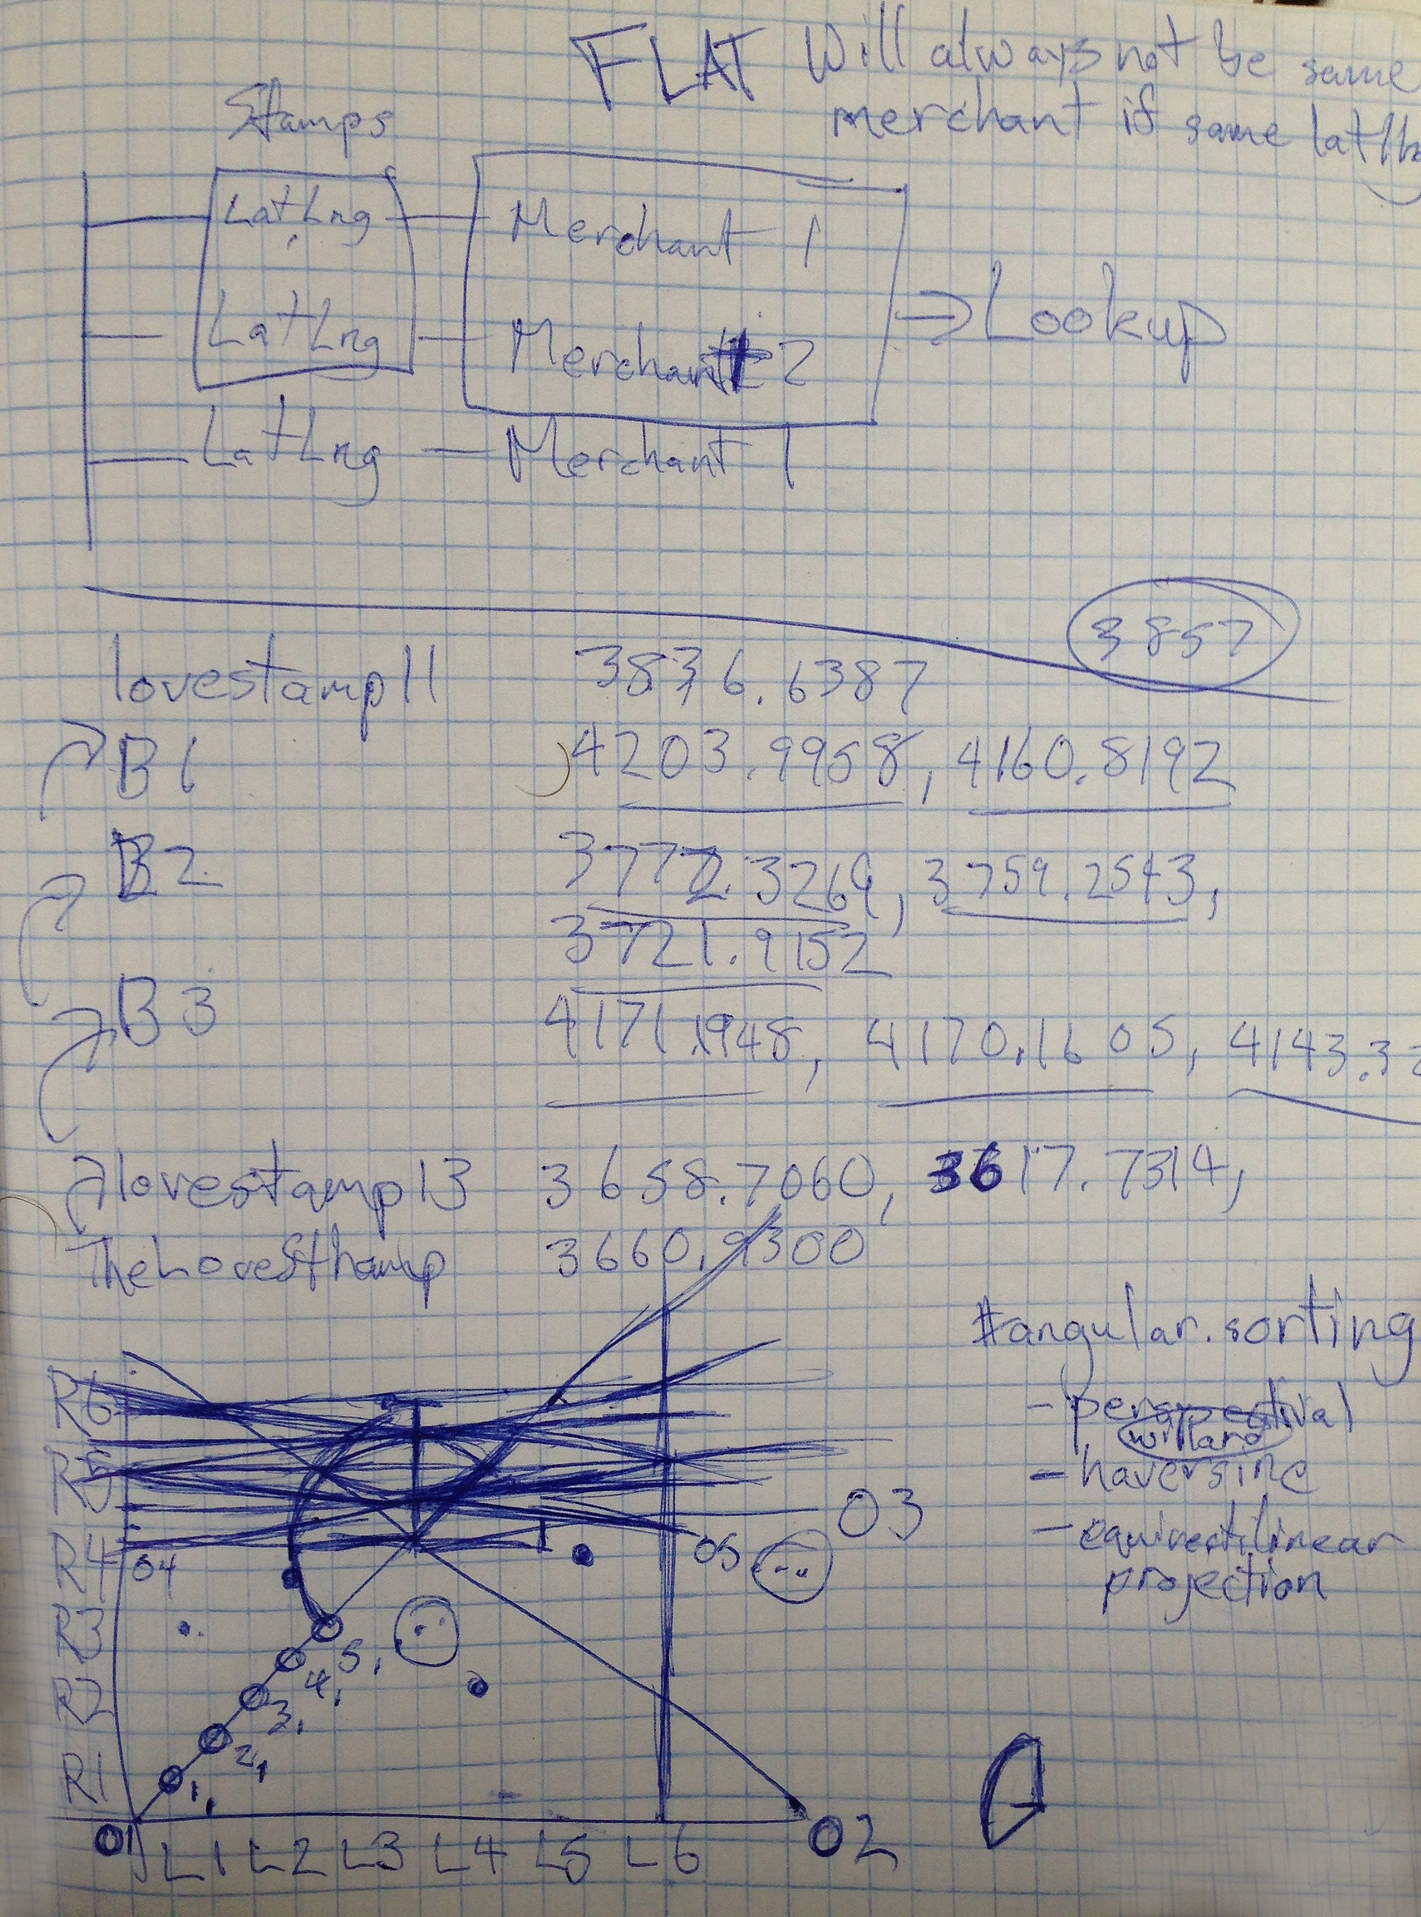 FLAT Will always not be same
merchant if same lat/
Stamps
LatLng Merchant 1
LatLng Merchant 2
=> Lookup
LatLng Merchant 1
3857
lovestamp11 3836.6387
B1 4203.9958, 4160.8192
B2 3772.3269, 3759.2543,
3721.9152
B3 4171.1948, 4170.1605, 4143.3
lovestamp13 3658.7060, 3617.7314,
TheLovesthamp 3660.9300
#angular.sorting
- perspectival
- haversine
- equirectilinear
projection
R6
R5
R4
R3
R2
R1
O3
O4
O5
5,
4,
3,
2,
1,
O1 L1 L2 L3 L4 L5 L6 O2